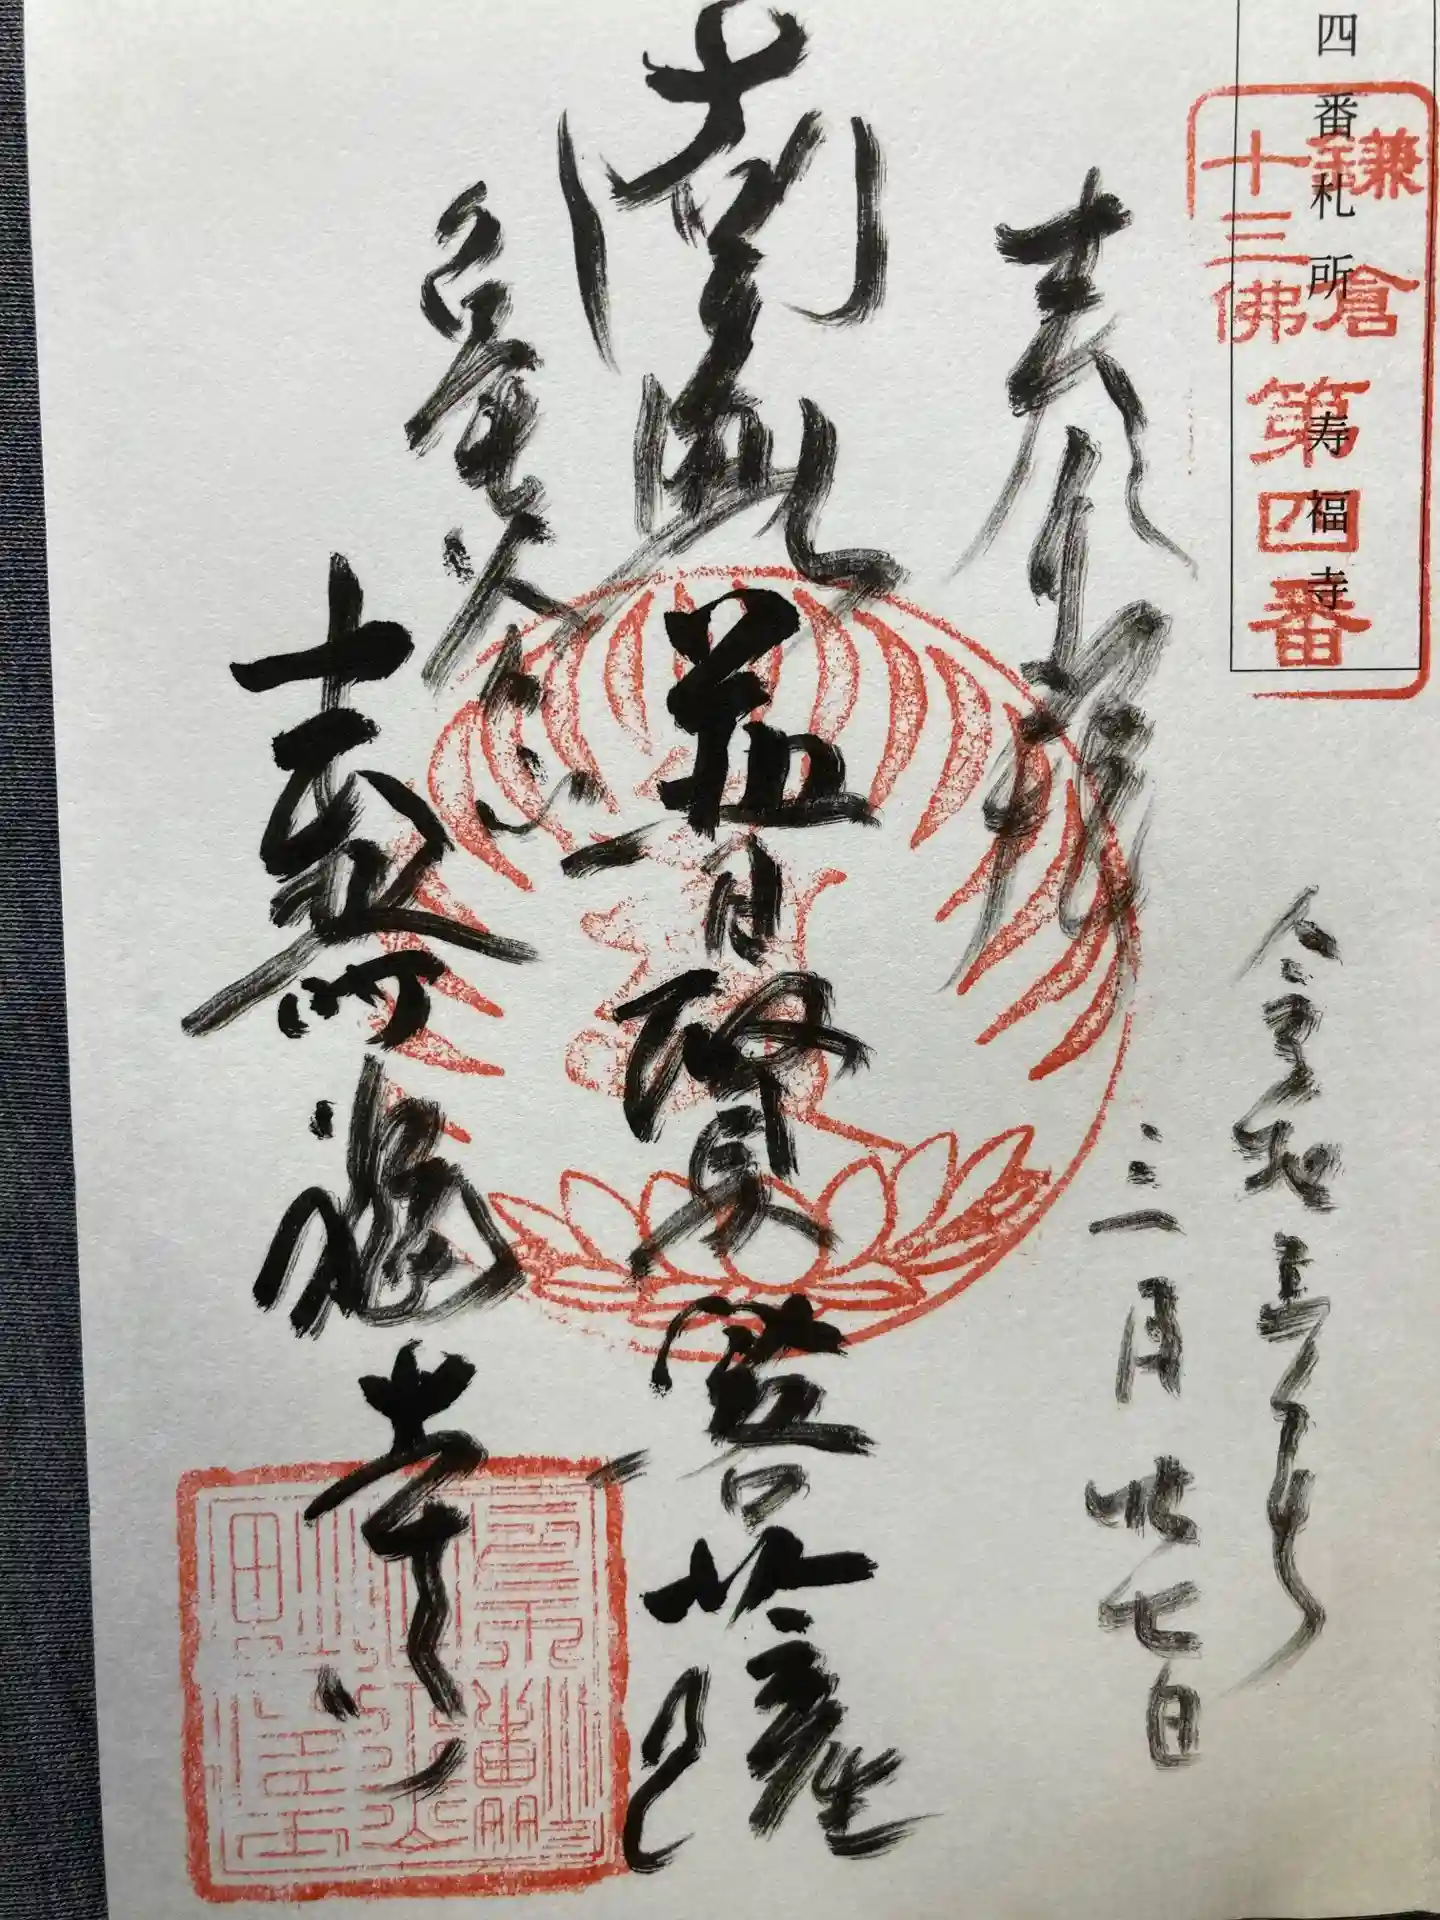 四番札所 寿福寺
鎌倉
十三佛
第四番
令和五年
三月廿七日
奉拝
南無普賢菩薩
亀谷山
壽福寺